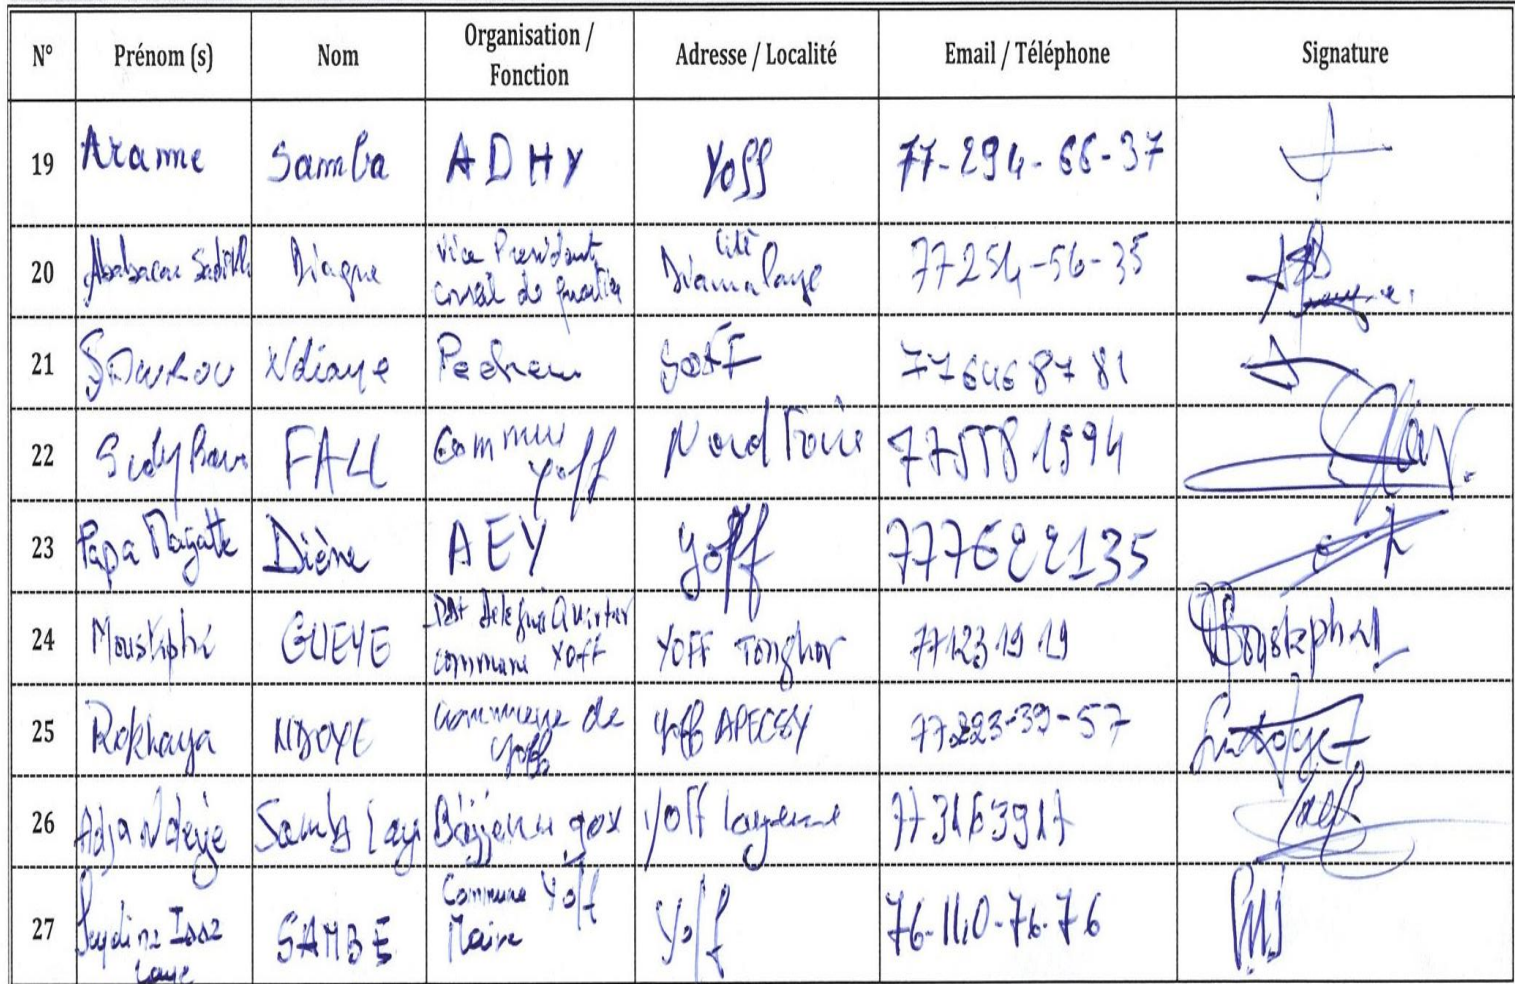 N° Prénom (s) Nom Organisation / Fonction Adresse / Localité Email / Téléphone Signature
19 Arame Samba ADHY Yoff 77-294-66-37
20 Ababacar Diagne Vice President conseil de quartier cité Diamalaye 77254-56-35
21 Ndiaye Pecheur 7764687 81
22 FALL Commune Yoff Nord Foire 1994
23 Papa Magatte Diène AEY Yoff 777622135
24 GUEYE Quartier commune Yoff YOFF Tonghor 77123 19 19
25 Rokhaya NDOYE Commune de Yoff Yoff APECSY 77223-39-57
26 Adja Ndèye Samba Laye gox Yoff layenne 773163917
27 Seydina Issa Laye SAMBE Commune Yoff Maire Yoff 76-110-76-76